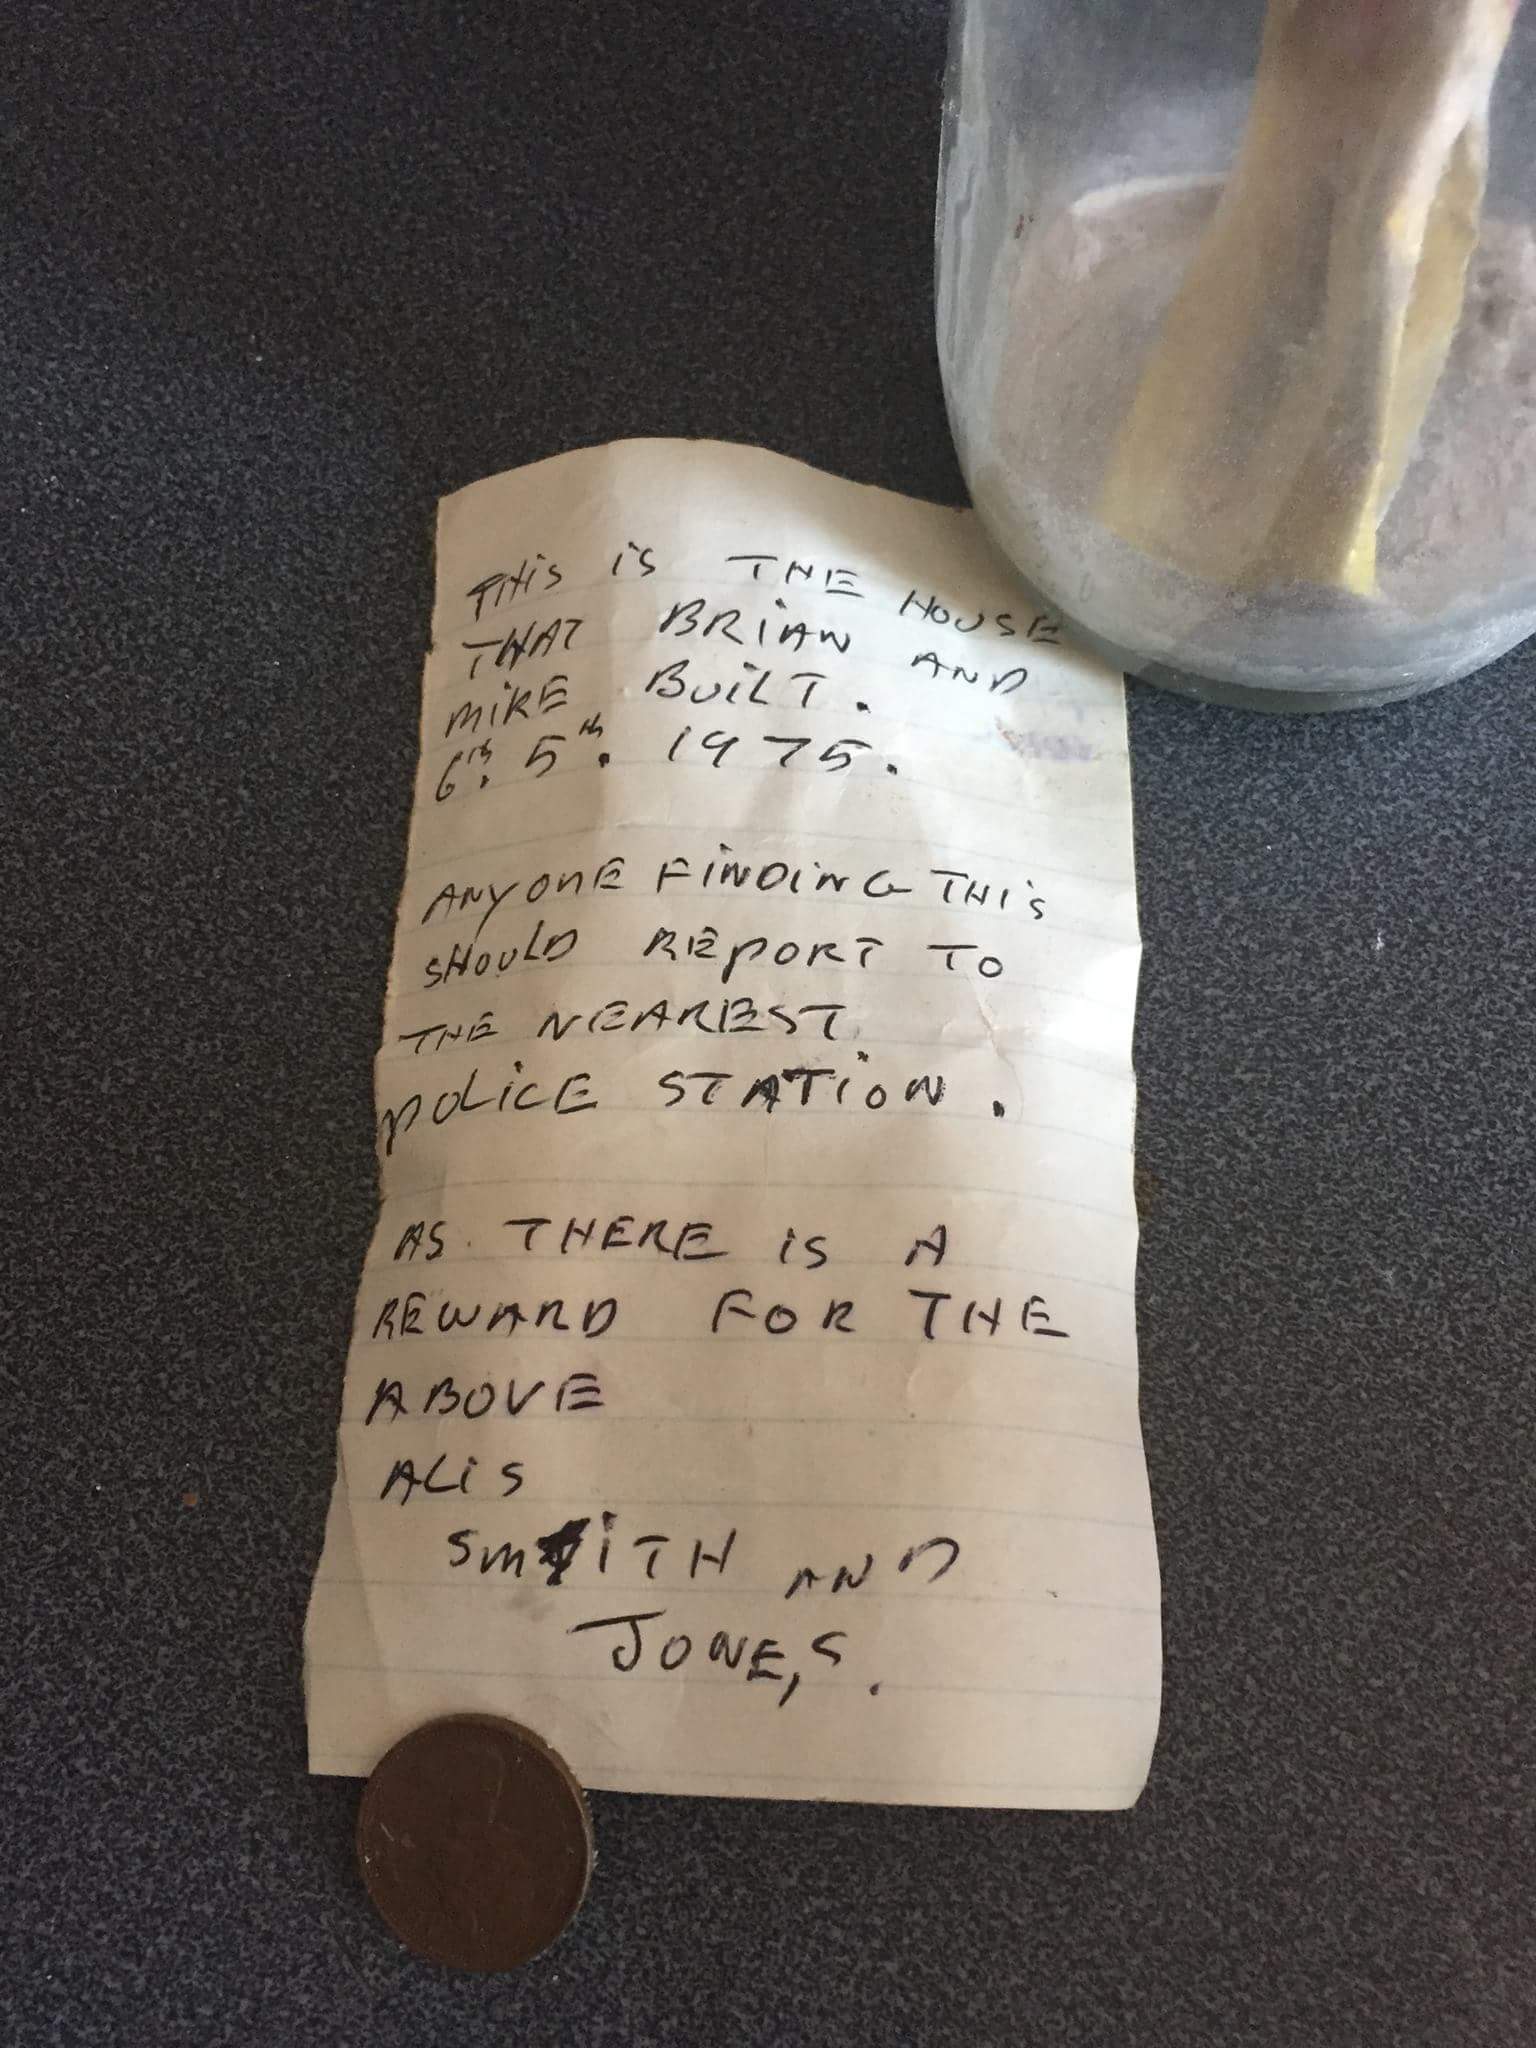 THiS iS THE HOUSE
THAT BRiAN AND
MiKE BUiLT.
6th. 5th. 1975.
ANYONE FiNDiNG THiS
SHOULD REPORT TO
THE NEAREST
POLiCE STATiON.
AS THERE iS A
REWARD FOR THE
ABOVE
ALiS
SMiTH AND
JONE,S.